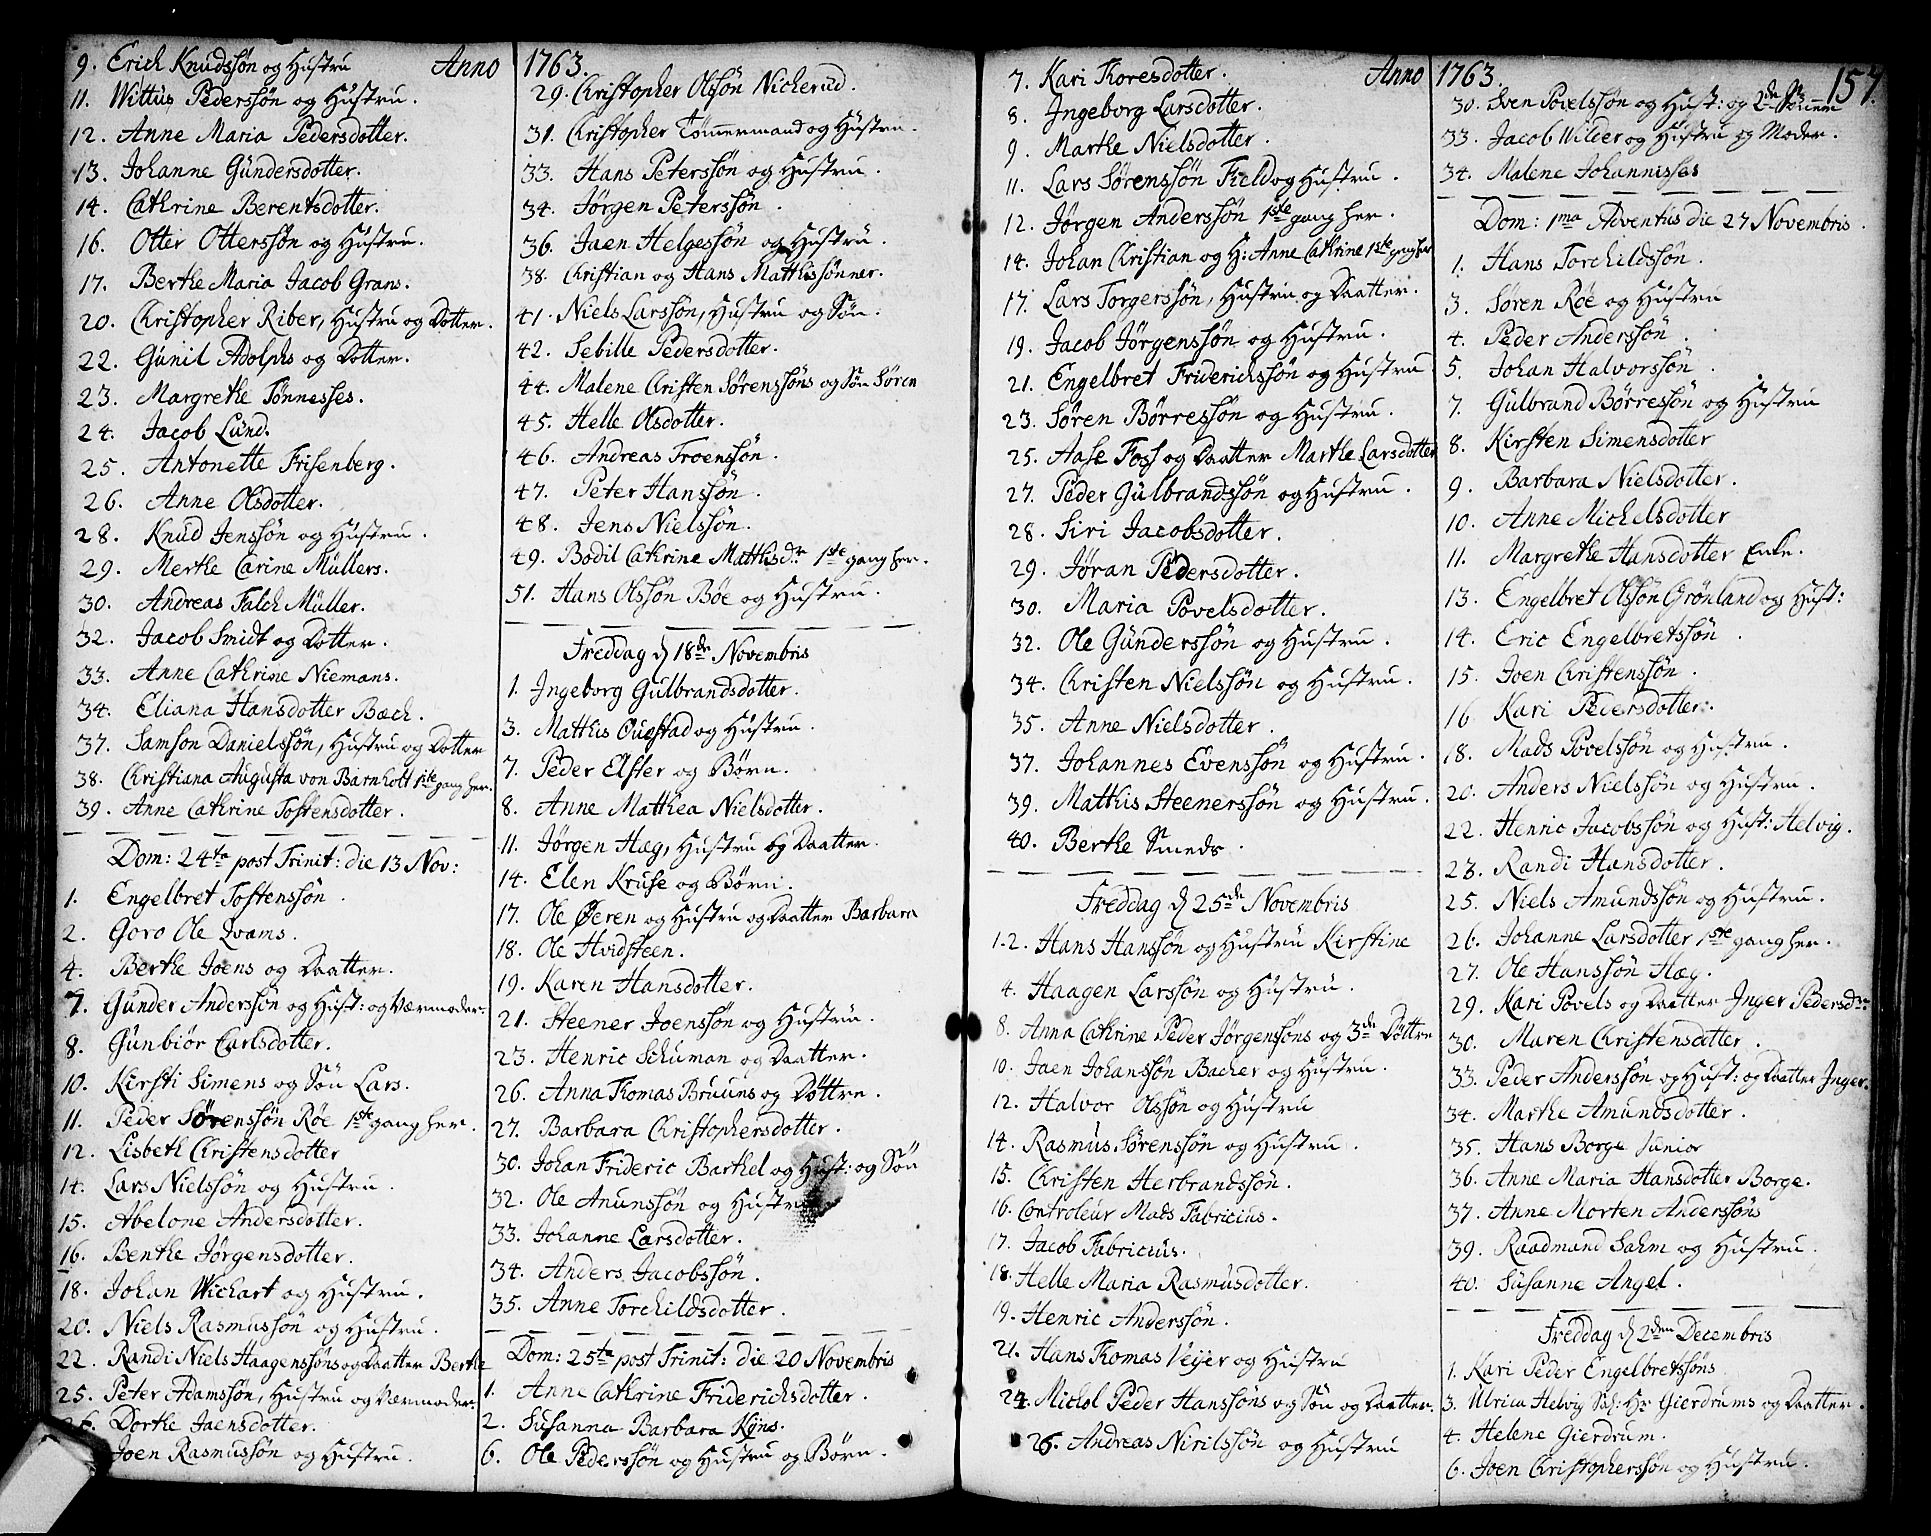 Anno 1763.
9. Erich Knudssøn og Hustru
11. Wittus Pederssøn og Hustru.
12. Anne Maria Pedersdotter.
13. Johanne Gundersdotter.
14. Cathrine Berentsdotter.
16. Otter Otterssøn og Hustru.
17. Berthe Maria Jacob Grans.
20. Christopher Riber, Hustru og Dotter.
22. Gunil Adolphs og Dotter.
23. Margrethe Tønnesses.
24. Jacob Lund.
25. Antonette Frisenberg.
26. Anne Olsdotter.
28. Knud Jenssøn og Hustru.
29. Merthe Carine Müllers.
30. Andreas Falch Müller.
32. Jacob Smidt og Dotter.
33. Anne Cathrine Niemans.
34. Eliana Hansdotter Bæch.
37. Samson Danielssøn, Hustru og Dotter
38. Christiana Augusta von Barnholt 1ste gang her.
39. Anne Cathrine Tostensdotter.
Dom: 24ta post Trinit: die 13 Nov:
1. Engelbret Tostenssøn.
2. Goro Ole Qvams.
4. Berthe Joens og Daatter.
7. Gunder Anderssøn og Hust: og Værmoder.
8. Gunbiør Carlsdotter.
10. Kirsti Simens og Søn Lars.
11. Peder Sørenssøn Røe 1ste gang her.
12. Lisbeth Christensdotter
14. Lars Nielssøn og Hustru.
15. Abelone Andersdotter.
16. Benthe Jørgensdotter.
18. Johan Wichart og Hustru.
20. Niels Rasmussøn og Hustru.
22. Randi Niels Haagenssøns og Daatter Berthe
25. Peter Adamssøn, Hustru og Værmoder.
26. Dorthe Jaensdotter.
Joen Rasmussøn og Hustru.
29. Christopher Olssøn Nicherud.
31. Christopher Tømmermand og Hustru.
33. Hans Peterssøn og Hustru.
34. Jørgen Peterssøn.
36. Jaen Helgessøn og Hustru.
38. Christian og Hans Matthissønner.
41. Niels Larssøn, Hustru og Søn.
42. Sebille Pedersdotter.
44. Malene Christen Sørenssøns og Søn Søren
45. Helle Olsdotter.
46. Andreas Troenssøn.
47. Peter Hanssøn.
48. Jens Nielssøn.
49. Bodil Cathrine Matthisdr 1ste gang her.
51. Hans Olssøn Bøe og Hustru.
Freddag d 18de Novembris
1. Ingeborg Gulbrandsdotter.
3. Matthis Quæstad og Hustru.
7. Peder Elster og Børn.
8. Anne Mathea Nielsdotter.
11. Jørgen Hæg, Hustru og Daatter.
14. Elen Kruse og Børn.
17. Ole Øeren og Hustru og Daatter Barbara
18. Ole Hvidsteen.
19. Karen Hansdotter.
21. Steener Joenssøn og Hustru.
23. Henric Schuman og Daatter.
26. Anna Thomas Bruuns og Døttre.
27. Barbara Christophersdotter.
30. Johan Frideric Barthel og Hust: og Søn
32. Ole Anunssøn og Hustru
33. Johanne Larsdotter.
34. Anders Jacobssøn.
35. Anne Torchildsdotter.
Dom: 25ta post Trinit: die 20 Novembris
1. Anne Cathrine Friderichsdotter.
2. Susanna Barbara Kyns.
6. Ole Pederssøn og Hustru og Børn.
Anno 1763. 157.
7. Kari Thoresdotter.
8. Ingeborg Larsdotter.
9. Marthe Nielsdotter.
11. Lars Sørenssøn Field og Hustru.
12. Jørgen Anderssøn 1ste gang her.
14. Johan Christian og H: Anne Cathrine 1ste gang her
17. Lars Torgerssøn, Hustru og Daatter.
19. Jacob Jørgenssøn og Hustru.
21. Engelbret Friderichssøn og Hustru
23. Søren Børressøn og Hustru.
25. Aase Foss og Daatter Marthe Larsdotter
27. Peder Gulbrandssøn og Hustru.
28. Siri Jacobsdotter.
29. Jøran Pedersdotter.
30. Maria Povelsdotter.
32. Ole Gunderssøn og Hustru.
34. Christen Nielssøn og Hustru.
35. Anne Nielsdotter.
37. Johannes Evenssøn og Hustru.
39. Matthis Steenerssøn og Hustru.
40. Berthe Smeds.
Freddag d 25de Novembris
1.2. Hans Hanssøn og Hustru Kirstine
4. Haagen Larssøn og Hustru.
8. Anna Cathrine Peder Jørgenssøns og 3de Døttre
10. Jaen Johanssøn Bacher og Hustru.
12. Halvor Olssøn og Hustru
14. Rasmus Sørenssøn og Hustru.
15. Christen Herbrandssøn.
16. Controleur Mads Fabricius.
17. Jacob Fabricius.
18. Helle Maria Rasmusdotter.
19. Henric Anderssøn.
21. Hans Thomas Veyer og Hustru
24. Michol Peder Hanssøns og Søn og Daatter.
26. Andreas Nirilssøn og Hustru
30. Sven Povelssøn og Hust: og 2de
33. Jacob Wilder og Hustru og Moder.
34. Malene Johannisses
Dom: 1ma Adventus die 27 Novembris.
1. Hans Torchildssøn.
3. Søren Røe og Hustru
4. Peder Anderssøn.
5. Johan Halvorssøn.
7. Gulbrand Børressøn og Hustru
8. Kirsten Simensdotter
9. Barbara Nielsdotter.
10. Anne Michelsdotter
11. Margrethe Hansdotter Enke.
13. Engelbret Olssøn Grønland og Hust:
14. Eric Engelbretssøn.
15. Joen Christenssøn.
16. Kari Pedersdotter.
18. Mads Povelssøn og Hustru.
20. Anders Nielssøn og Hustru.
22. Henric Jacobssøn og Hust: Helvig.
23. Randi Hansdotter.
25. Niels Amundssøn og Hustru.
26. Johanne Larsdotter 1ste gang her.
27. Ole Hanssøn Hæg.
29. Kari Povels og Daatter Inger Pedersdr.
30. Maren Christensdotter.
33. Peder Anderssøn og Hust: og Daatter Inger.
34. Marthe Amundsdotter.
35. Hans Borge Junior
36. Anne Maria Hansdotter Borge.
37. Anne Morten Anderssøns
39. Raadmand Sahm og Hustru.
40. Susanne Angel.
Freddag d 2den Decembris
1. Kari Peder Engelbretssøns
3. Ulrica Helvig Sal: Hr Gierdrums og Daatter.
4. Helene Gierdrum.
6. Joen Christopherssøn og Hustru.